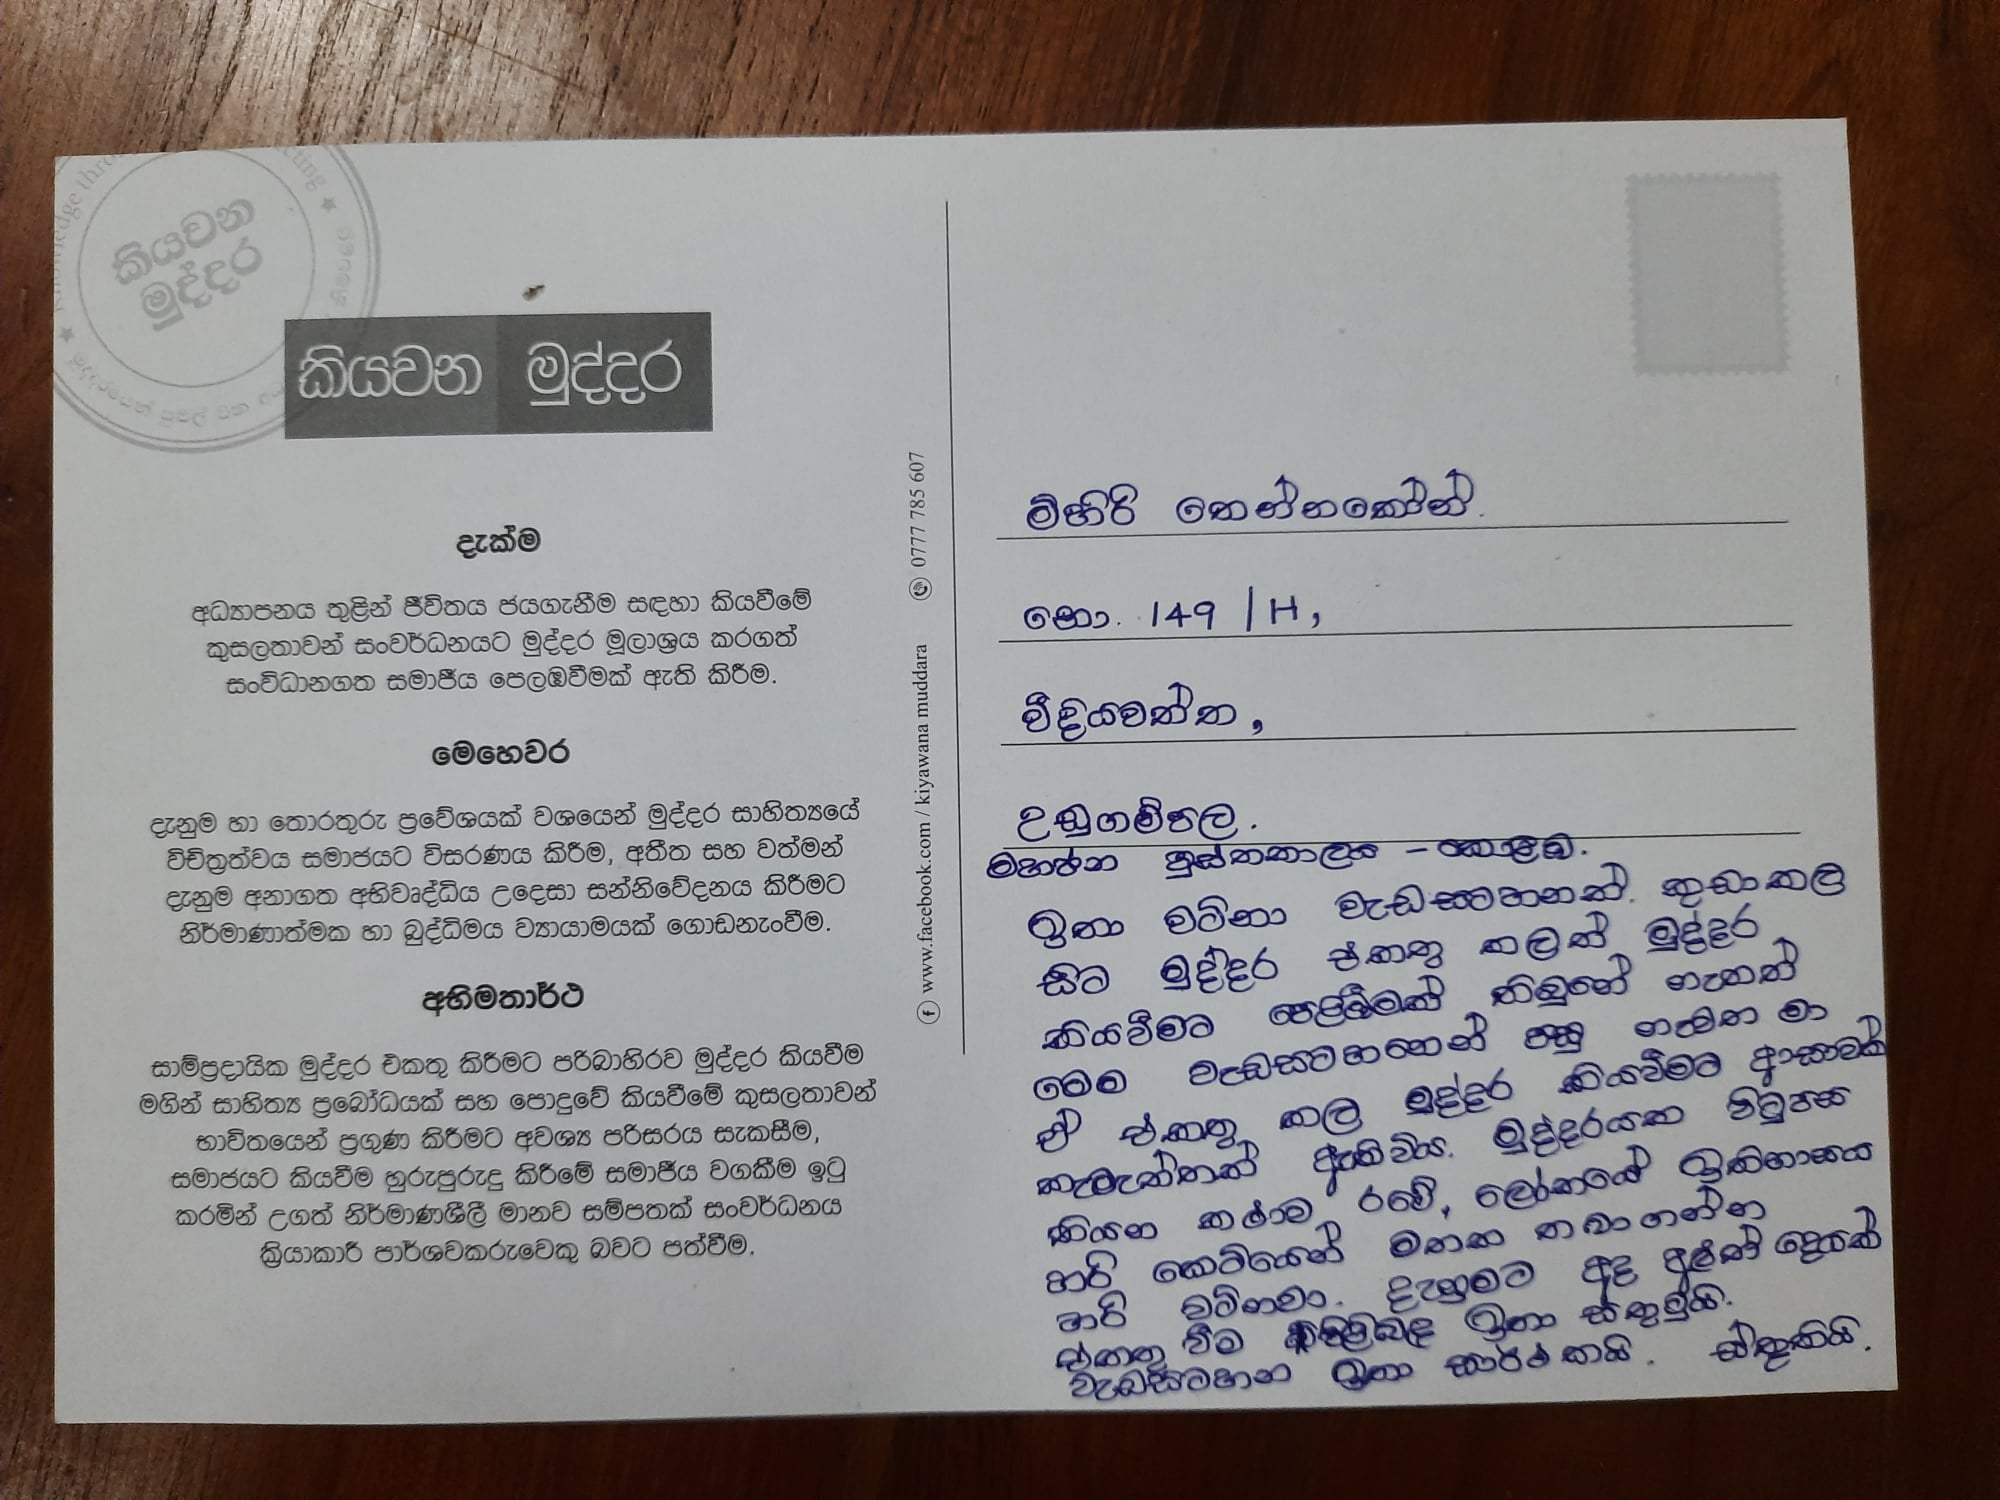 කියවන
මුද්දර
කියවන මුද්දර
දැක්ම
අධ්‍යාපනය තුළින් ජීවිතය ජයගැනීම සඳහා කියවීමේ
කුසලතාවන් සංවර්ධනයට මුද්දර මූලාශ්‍රය කරගත්
සංවිධානගත සමාජීය පෙලඹවීමක් ඇති කිරීම.
මෙහෙවර
දැනුම හා තොරතුරු ප්‍රවේශයක් වශයෙන් මුද්දර සාහිත්‍යයේ
විචිත්‍රත්වය සමාජයට විසරණය කිරීම, අතීත සහ වත්මන්
දැනුම අනාගත අභිවෘද්ධිය උදෙසා සන්නිවේදනය කිරීමට
නිර්මාණාත්මක හා බුද්ධිමය ව්‍යායාමයක් ගොඩනැංවීම.
අභිමතාර්ථ
සාම්ප්‍රදායික මුද්දර එකතු කිරීමට පරිබාහිරව මුද්දර කියවීම
මගින් සාහිත්‍ය ප්‍රබෝධයක් සහ පොදුවේ කියවීමේ කුසලතාවන්
භාවිතයෙන් ප්‍රගුණ කිරීමට අවශ්‍ය පරිසරය සැකසීම,
සමාජයට කියවීම හුරුපුරුදු කිරීමේ සමාජීය වගකීම ඉටු
කරමින් උගත් නිර්මාණශීලී මානව සම්පතක් සංවර්ධනය
ක්‍රියාකාරී පාර්ශවකරුවෙකු බවට පත්වීම.
www.facebook.com / kiyawana muddara 0777 785 607
මිහිරි තෙන්නකෝන්.
නො. 149 / H,
වීදියවත්ත,
උඩුගම්පල.
මහජන පුස්තකාලය - කොළඹ.
ඉතා වටිනා වැඩසටහනක්. කුඩා කල
සිට මුද්දර එකතු කලත් මුද්දර
කියවීමට පෙළඹීමක් තිබුනේ නැතත්
මෙම වැඩසටහනෙන් පසු නැවත මා
ඒ එකතු කල මුද්දර කියවීමට ආසාවක්
කැමැත්තක් ඇතිවිය. මුද්දරයක පිටුපස
කියන කථාව රටේ, ලෝකයේ ඉතිහාසය
හරි කෙටියෙන් මතක තබාගන්න
හරි වටිනවා. දැනුමට අද අළුත් දෙයක්
එකතු වීම පිළිබඳ ඉතා ස්තුතියි.
වැඩසටහන ඉතා සාර්ථකයි. ස්තූතියි.